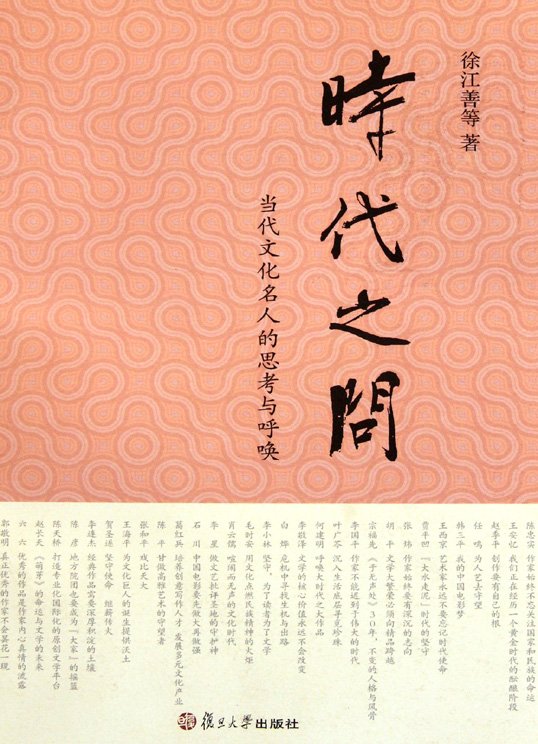 徐江善等 著
時代之問
当代文化名人的思考与呼唤
陈忠实 作家始终不忘关注国家和民族的命运
王安忆 我们正在经历一个黄金时代的酝酿阶段
赵季平 创作要有自己的根
任 鸣 为人艺人守望
韩三平 我的中国电影梦
王西京 艺术家永远不要忘记时代使命
贾平凹 “大水走泥”时代的坚守
张 炜 作家始终要有深沉的走向
胡 平 文学大繁荣必须向精品跨越
宗福先 《于无声处》30年,不变的人格与风骨
李国平 作家不能迟到于伟大的时代
叶广芩 沉入生活底层寻觅珍珠
何建明 呼唤大时代之大作品
李敬泽 文学的核心价值永远不会改变
白 烨 危机中寻找生机与出路
李小林 坚守,为了读者为了文学
毛时安 用文化点燃民族精神的火炬
肖云儒 喧闹而无声的文化时代
李 星 做文艺批评圣地的守护神
石 川 中国电影要先做大再做强
葛红兵 培养创意写作人才 发展多元文化产业
陈 平 甘做高雅艺术的守望者
张和平 戏比天大
王海平 为文化巨人的诞生提供沃土
贺圣遂 坚守使命 继薪传火
李连杰 经典作品需要深厚积淀的土壤
陈 彦 地方院团也要成为“大家”的摇篮
陈天桥 打造专业化国际化的原创文学平台
赵长天 《萌芽》的命运与文学的未来
六 六 优秀的作品是作家内心真情的流露
郭敬明 真正优秀的作家不会昙花一现
復旦大学出版社